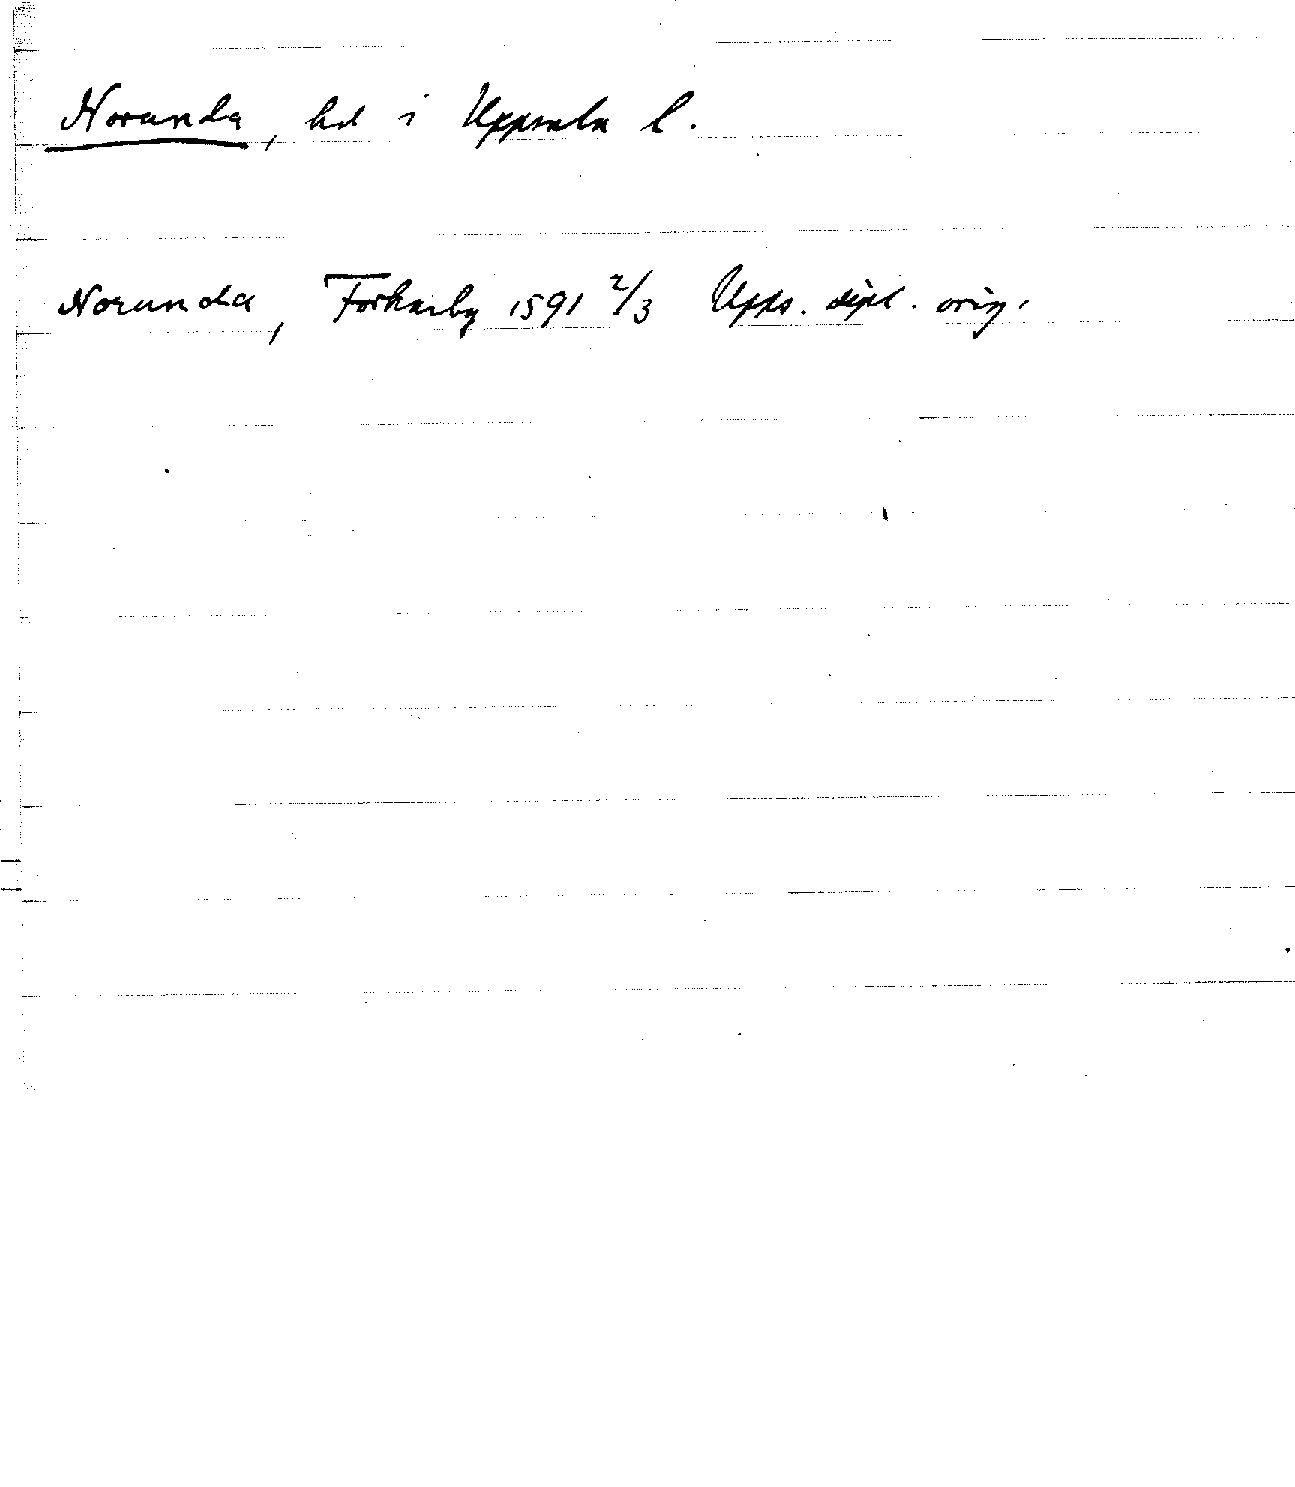 Norunda, hd i Uppsala l.
Norunda, Forkarby 1591 2/3 Upps. dipl. orig.